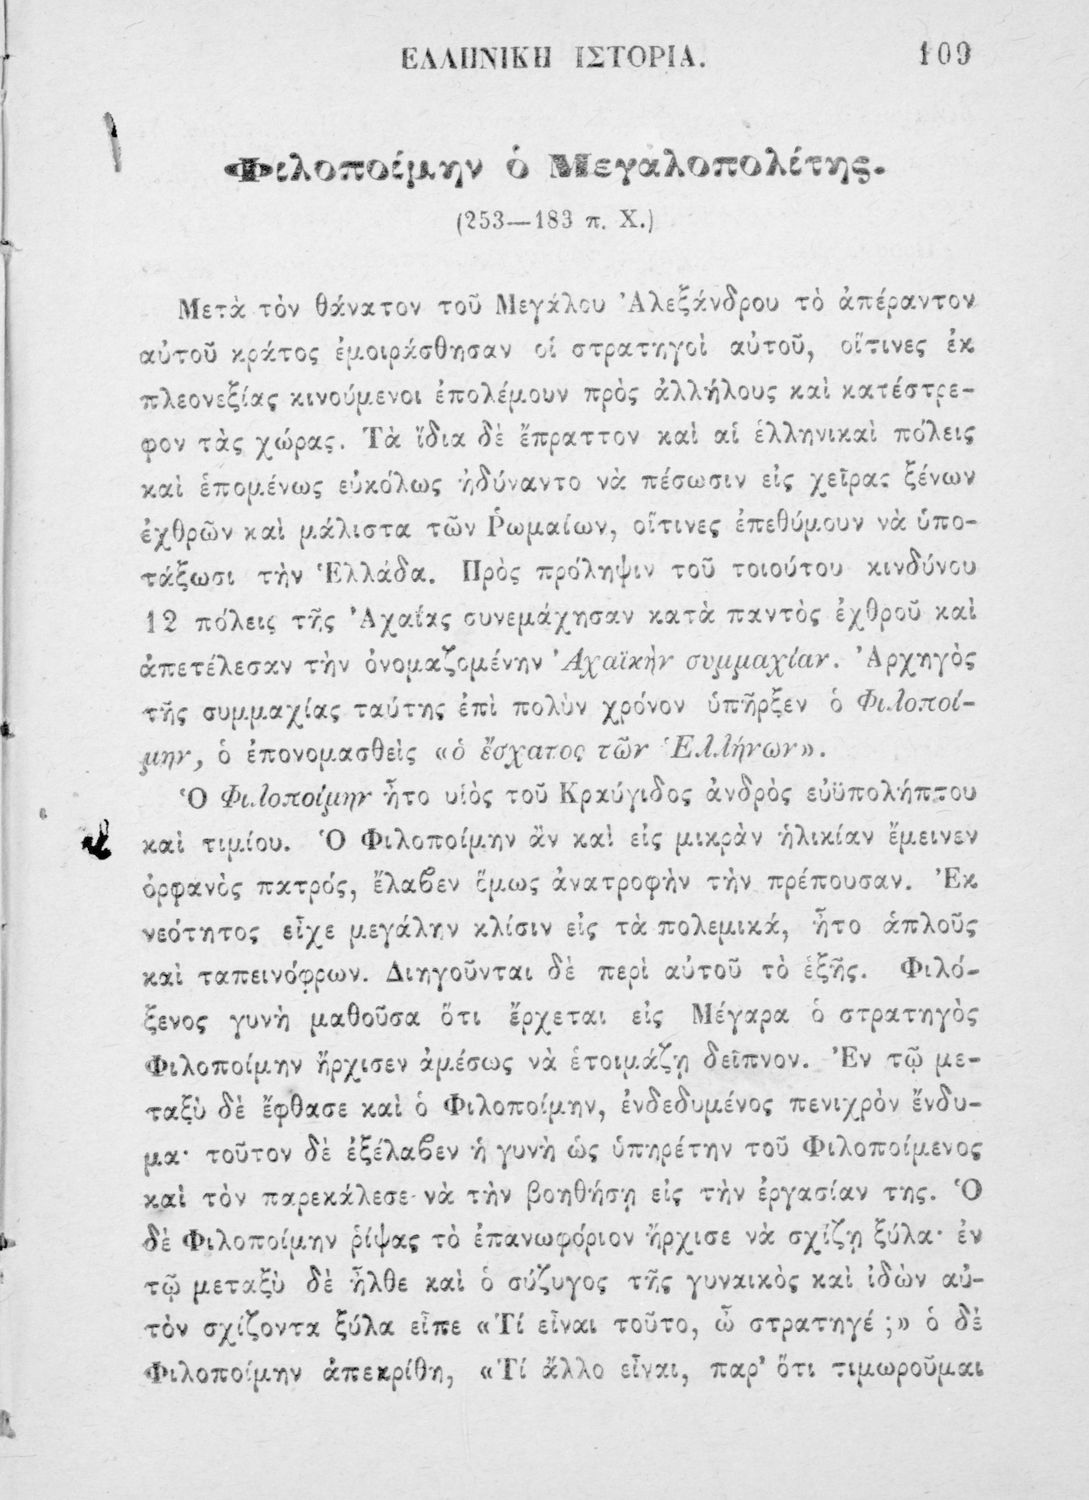 ΕΛΛΗΝΙΚΗ ΙΣΤΟΡΙΑ. 109
Φιλοποίμην ὁ Μεγαλοπολίτης.
(253—183 π. Χ.)
Μετὰ τὸν θάνατον τοῦ Μεγάλου Ἀλεξάνδρου τὸ ἀπέραντον
αὐτοῦ κράτος ἐμοιράσθησαν οἱ στρατηγοὶ αὐτοῦ, οἵτινες ἐκ
πλεονεξίας κινούμενοι ἐπολέμουν πρὸς ἀλλήλους καὶ κατέστρε-
φον τὰς χώρας. Τὰ ἴδια δὲ ἔπραττον καὶ αἱ ἑλληνικαὶ πόλεις
καὶ ἑπομένως εὐκόλως ἠδύναντο νὰ πέσωσιν εἰς χεῖρας ξένων
ἐχθρῶν καὶ μάλιστα τῶν Ῥωμαίων, οἵτινες ἐπεθύμουν νὰ ὑπο-
τάξωσι τὴν Ἑλλάδα. Πρὸς πρόληψιν τοῦ τοιούτου κινδύνου
12 πόλεις τῆς Ἀχαΐας συνεμάχησαν κατὰ παντὸς ἐχθροῦ καὶ
ἀπετέλεσαν τὴν ὀνομαζομένην Ἀχαϊκὴν συμμαχίαν. Ἀρχηγὸς
τῆς συμμαχίας ταύτης ἐπὶ πολὺν χρόνον ὑπῆρξεν ὁ Φιλοποί-
μην, ὁ ἐπονομασθεὶς «ὁ ἔσχατος τῶν Ἑλλήνων».
Ὁ Φιλοποίμην ἦτο υἱὸς τοῦ Κραύγιδος ἀνδρὸς εὐϋπολήπτου
καὶ τιμίου. Ὁ Φιλοποίμην ἂν καὶ εἰς μικρὰν ἡλικίαν ἔμεινεν
ὀρφανὸς πατρός, ἔλαβεν ὅμως ἀνατροφὴν τὴν πρέπουσαν. Ἐκ
νεότητος εἶχε μεγάλην κλίσιν εἰς τὰ πολεμικά, ἦτο ἁπλοῦς
καὶ ταπεινόφρων. Διηγοῦνται δὲ περὶ αὐτοῦ τὸ ἑξῆς. Φιλό-
ξενος γυνὴ μαθοῦσα ὅτι ἔρχεται εἰς Μέγαρα ὁ στρατηγὸς
Φιλοποίμην ἤρχισεν ἀμέσως νὰ ἑτοιμάζῃ δεῖπνον. Ἐν τῷ με-
ταξὺ δὲ ἔφθασε καὶ ὁ Φιλοποίμην, ἐνδεδυμένος πενιχρὸν ἔνδυ-
μα· τοῦτον δὲ ἐξέλαβεν ἡ γυνὴ ὡς ὑπηρέτην τοῦ Φιλοποίμενος
καὶ τὸν παρεκάλεσε νὰ τὴν βοηθήσῃ εἰς τὴν ἐργασίαν της. Ὁ
δὲ Φιλοποίμην ῥίψας τὸ ἐπανωφόριον ἤρχισε νὰ σχίζῃ ξύλα· ἐν
τῷ μεταξὺ δὲ ἦλθε καὶ ὁ σύζυγος τῆς γυναικὸς καὶ ἰδὼν αὐ-
τὸν σχίζοντα ξύλα εἶπε «Τί εἶναι τοῦτο, ὦ στρατηγέ ;» ὁ δὲ
Φιλοποίμην ἀπεκρίθη, «Τί ἄλλο εἶναι, παρ' ὅτι τιμωροῦμαι